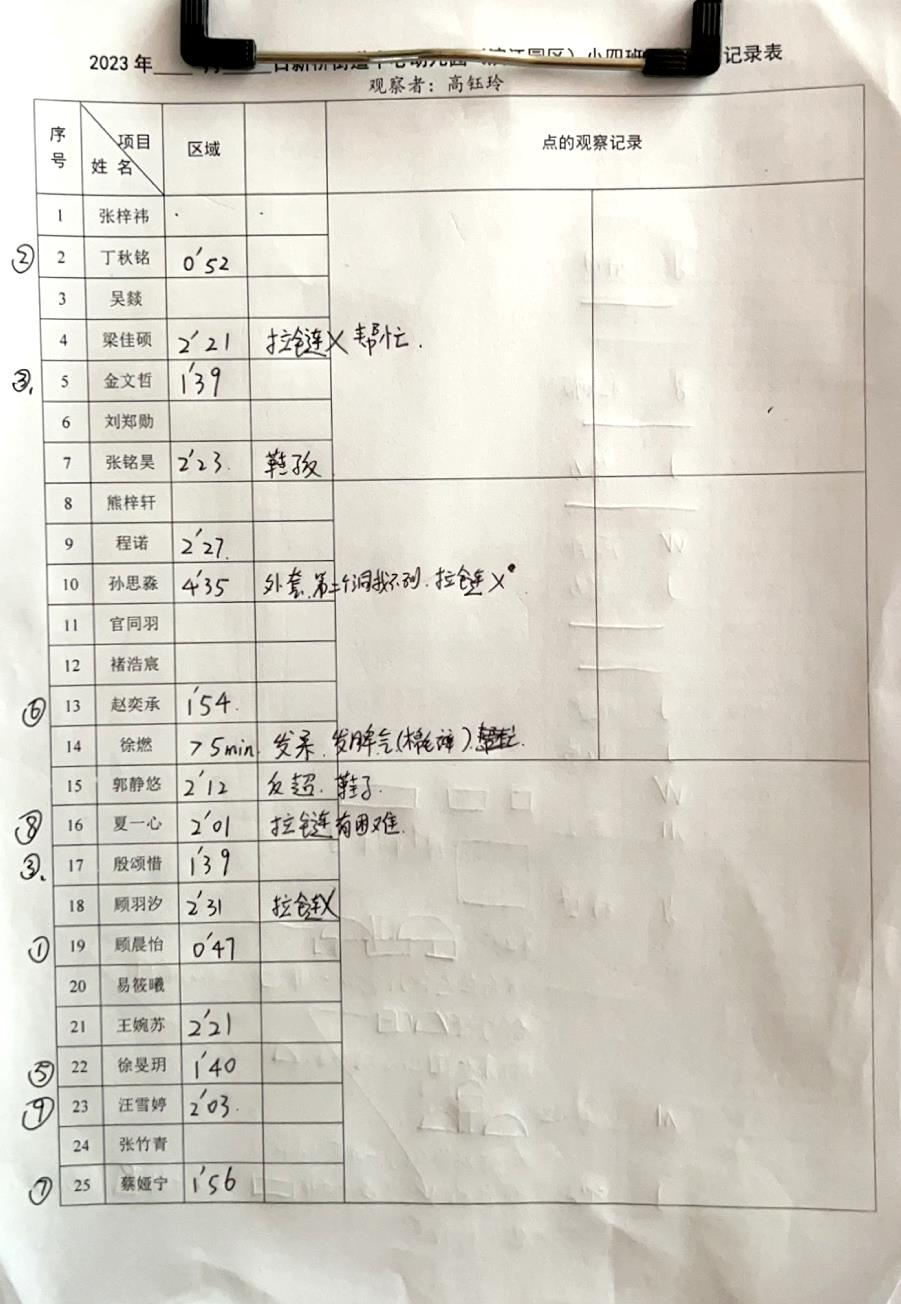 2023年 月 日新桥街道中心幼儿园（滨江园区）小四班 记录表
观察者：高钰玲
序号 项目 姓名 区域 点的观察记录
1 张梓祎
② 2 丁秋铭 0'52
3 吴燚
4 梁佳硕 2'21 拉链X 帮忙.
③. 5 金文哲 1'39
6 刘郑勋
7 张铭昊 2'23. 鞋子反
8 熊梓轩
9 程诺 2'27.
10 孙思淼 4'35 外套.第二个洞找不到.拉链X
11 官同羽
12 褚浩宸
⑥ 13 赵奕承 1'54.
14 徐燃 >5min. 发呆.发脾气
15 郭静悠 2'12 反超.鞋子.
⑧ 16 夏一心 2'01 拉链有困难.
③. 17 殷颂惜 1'39
18 顾羽汐 2'31 拉链X
① 19 顾晨怡 0'47
20 易筱曦
21 王婉苏 2'21
⑤ 22 徐旻玥 1'40
⑨ 23 汪雪婷 2'03.
24 张竹青
⑦ 25 蔡娅宁 1'56